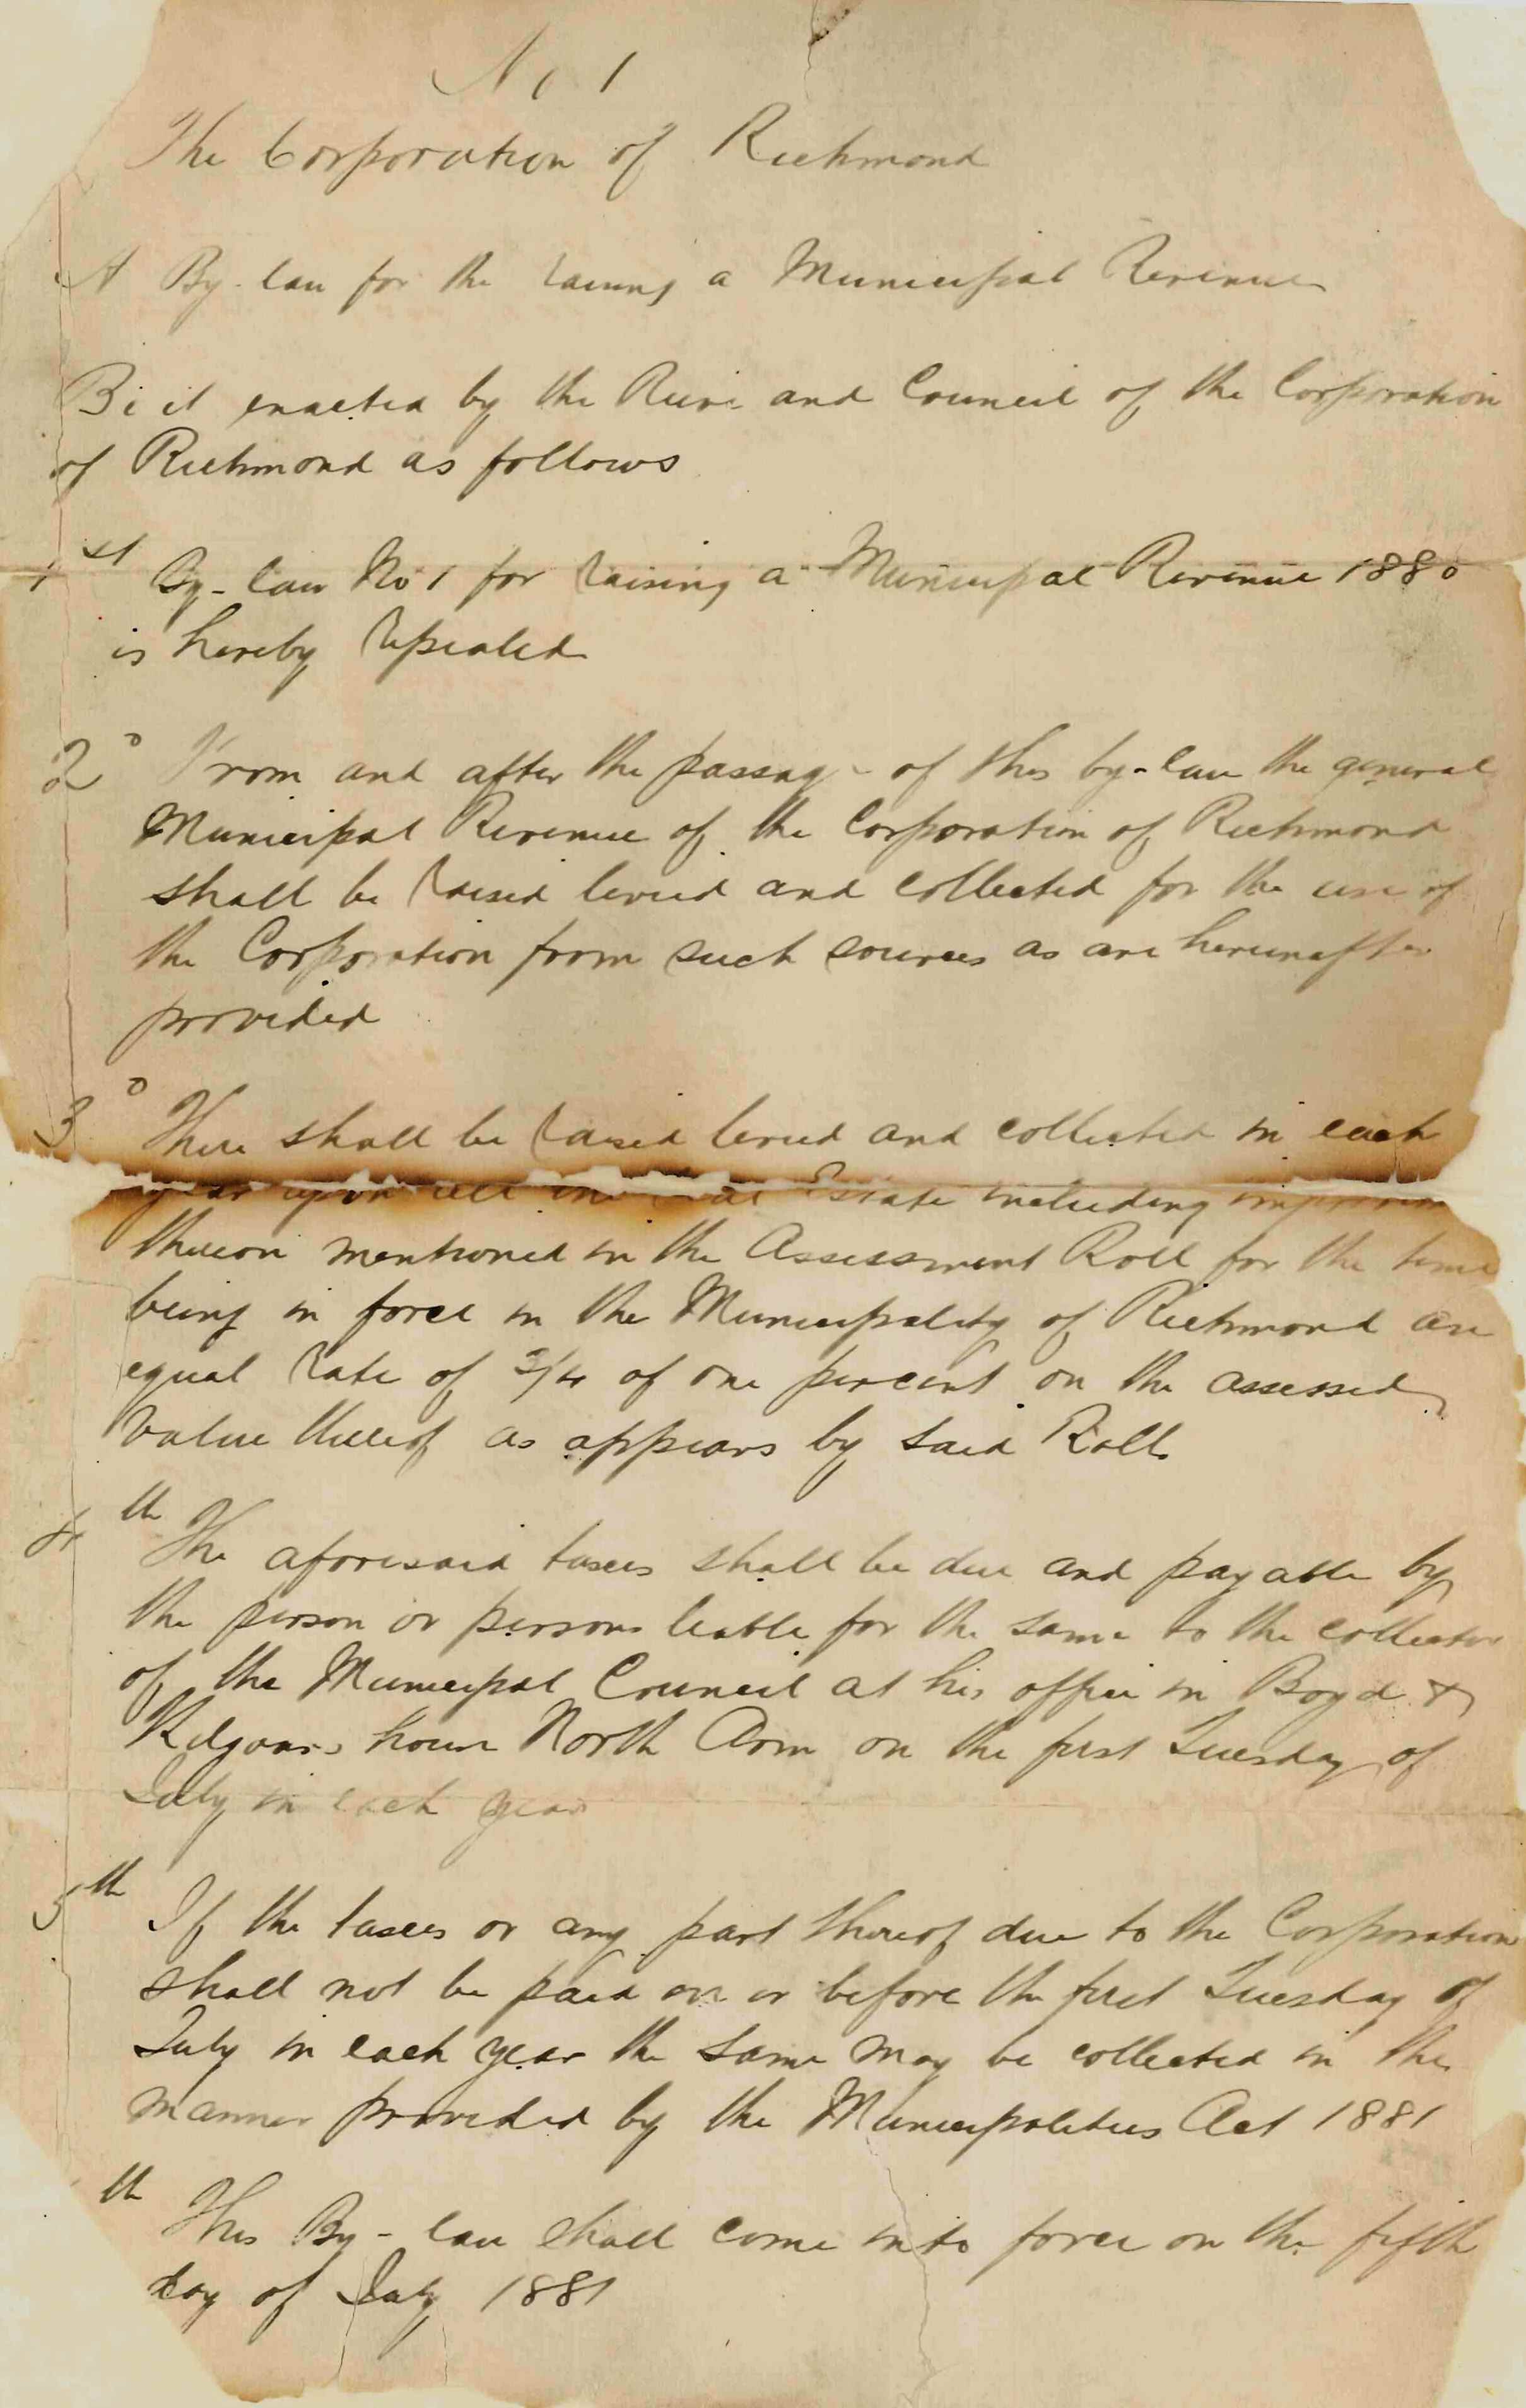 No 1
The Corporation of Richmond
A By-law for the raising a Municipal Revenue
Be it enacted by the Reeve and Council of the Corporation
of Richmond as follows
1st By-law No 1 for raising a Municipal Revenue 1880
is hereby repealed
2o From and after the passage of this by-law the general
Municipal Revenue of the Corporation of Richmond
shall be raised levied and collected for the use of
the Corporation from such sources as are hereinafter
provided
3o There shall be raised levied and collected in each
year upon all the real Estate including
thereon mentioned in the Assessment Roll for the time
being in force in the Municipality of Richmond an
equal rate of 3/4 of one percent on the assessed
value thereof as appears by said Roll
4th The aforesaid taxes shall be due and payable by
the person or persons liable for the same to the collector
of the Municipal Council at his office in Boyd &
Kilgours house North Arm on the first Tuesday of
July in each year
5th If the taxes or any part thereof due to the Corporation
shall not be paid on or before the first Tuesday of
July in each year the same may be collected in the
manner provided by the Municipalities Act 1881
th This By-law shall come into force on the fifth
day of July 1881